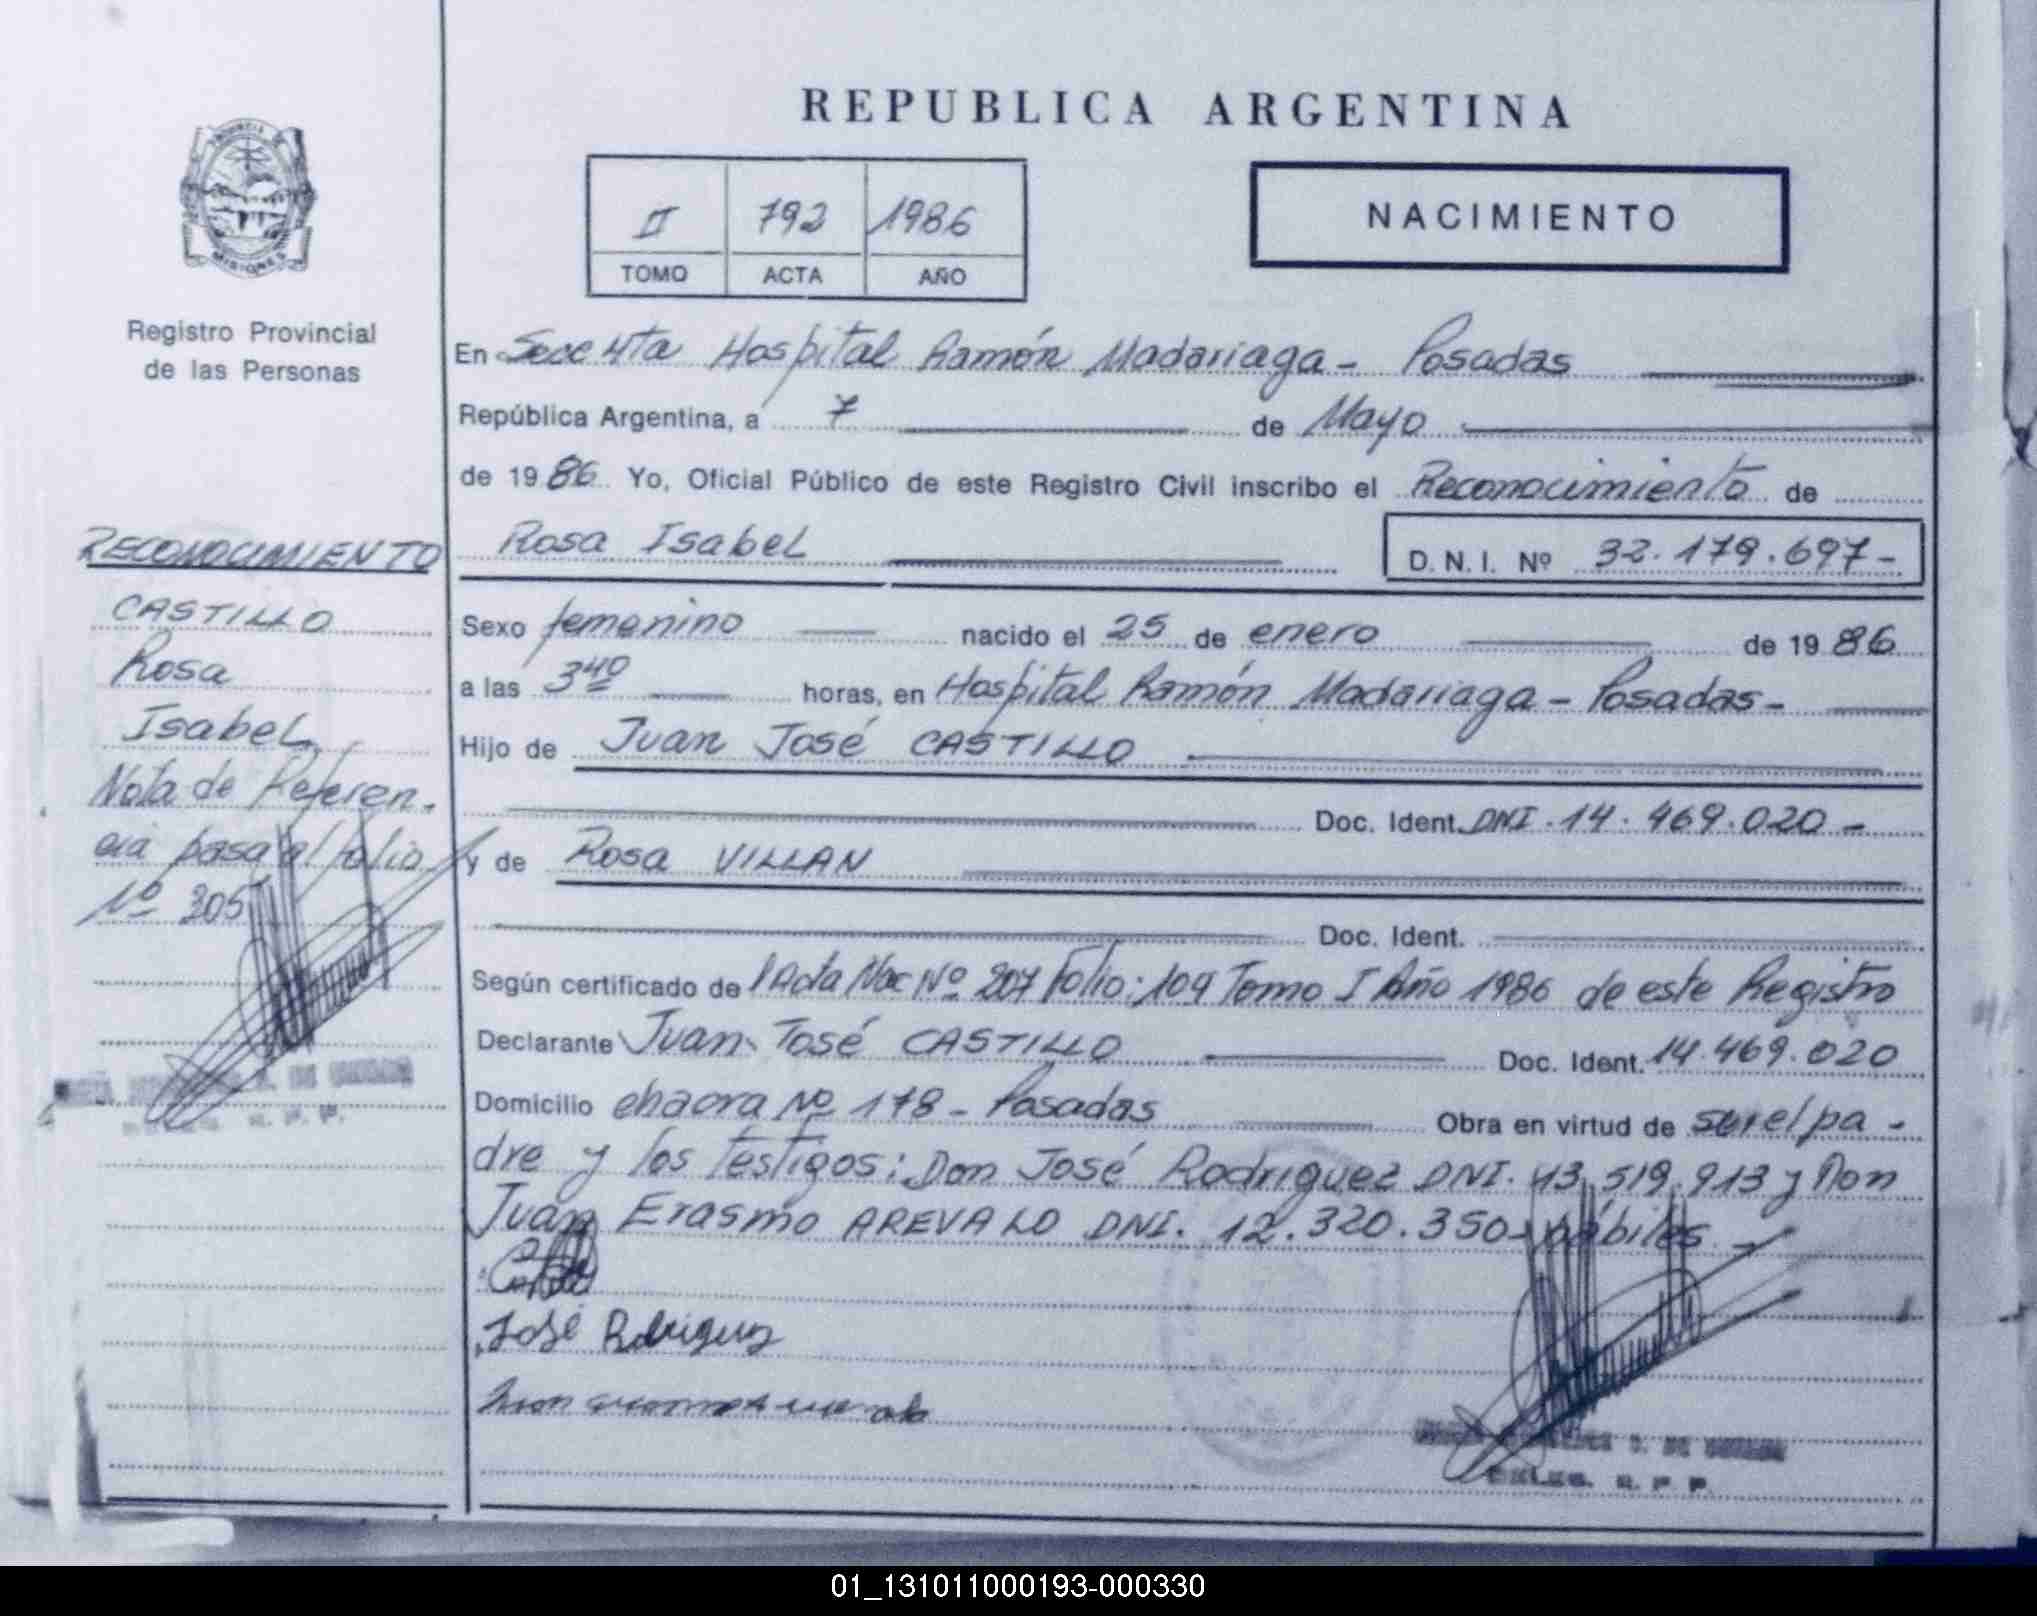 REPUBLICA ARGENTINA
PROVINCIA DE
MISIONES
Registro Provincial
de las Personas
II 792 1986
TOMO ACTA AÑO
NACIMIENTO
En Secc 4ta Hospital Ramón Madariaga - Posadas
República Argentina, a 7 de Mayo
de 1986 Yo, Oficial Público de este Registro Civil inscribo el Reconocimiento de
Rosa Isabel D. N. I. Nº 32.179.697-
Sexo femenino nacido el 25 de enero de 1986
a las 3 40 horas, en Hospital Ramón Madariaga - Posadas -
Hijo de Juan José CASTILLO
Doc. Ident. DNI. 14.469.020 -
y de Rosa VILLAN
Doc. Ident.
Según certificado de Acta Nac Nº 207 Folio: 109 Tomo I Año 1986 de este Registro
Declarante Juan José CASTILLO Doc. Ident. 14.469.020
Domicilio chacra Nº 178 - Posadas Obra en virtud de ser el pa-
dre y los testigos: Don José Rodriguez DNI. 13.519.913 y Don
Juan Erasmo AREVALO DNI. 12.320.350 - hábiles
José Rodriguez
RECONOCIMIENTO
CASTILLO
Rosa
Isabel
Nota de Referen-
cia pasa al folio
Nº 305
01_131011000193-000330